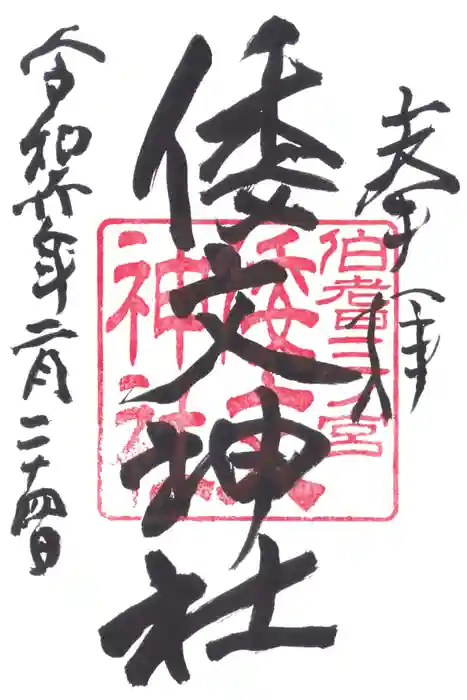 奉拝
伯耆三ノ宮
倭文神社
倭文神社
令和六年二月二十四日